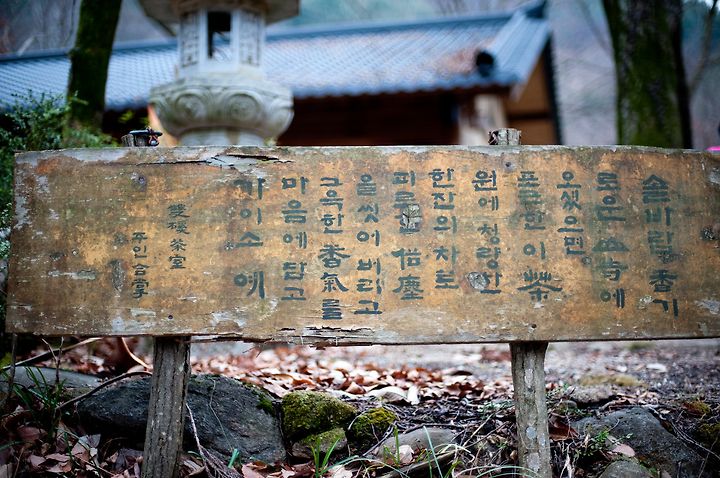 솔바람 香기
로운 山寺에
오셨으면,
푸근한 이 茶
원에 청량한
한잔의 차로
피로와 俗塵
을 씻어 버리고
그윽한 香氣를
마음에 담고
가이소 예
茶室
주인 合掌